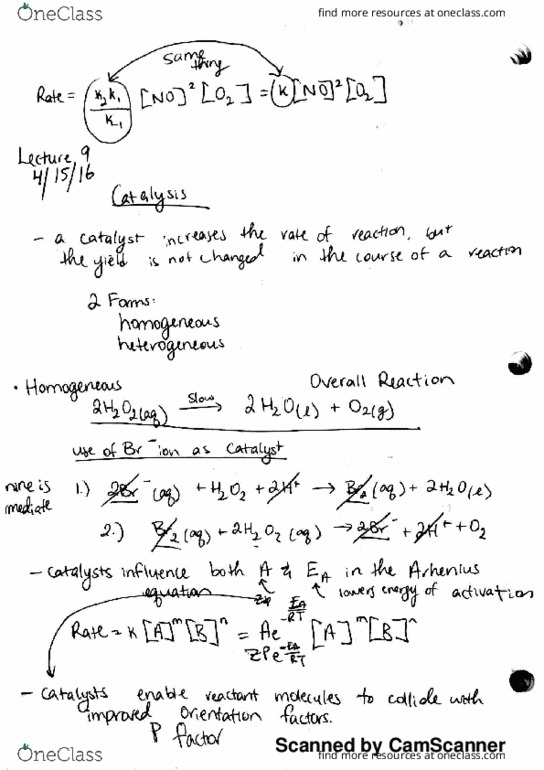 OneClass
find more resources at oneclass.com
same thing
Rate = (k₂k₁/k₋₁) [NO]² [O₂] = k [NO]² [O₂]
Lecture 9
4/15/16
Catalysis
- a catalyst increases the rate of reaction, but
the yield is not changed in the course of a reaction
2 Forms:
homogeneous
heterogeneous
• Homogeneous Overall Reaction
2H₂O₂(aq) Slow→ 2H₂O(l) + O₂(g)
use of Br⁻ ion as catalyst
is mediate
1.) 2Br⁻(aq) + H₂O₂ + 2H⁺ → Br₂(aq) + 2H₂O(l)
2.) Br₂(aq) + 2H₂O₂(aq) → 2Br⁻ + 2H⁺ + O₂
- catalysts influence both A & E_A in the Arhenius
equation lowers energy of activation
Rate = k[A]ᵐ[B]ⁿ = Ae^(-EA/RT) [A]ᵐ[B]ⁿ
ZPe^(-EA/RT)
- catalysts enable reactant molecules to collide with
improved orientation factors.
P factor
Scanned by CamScanner
OneClass
find more resources at oneclass.com